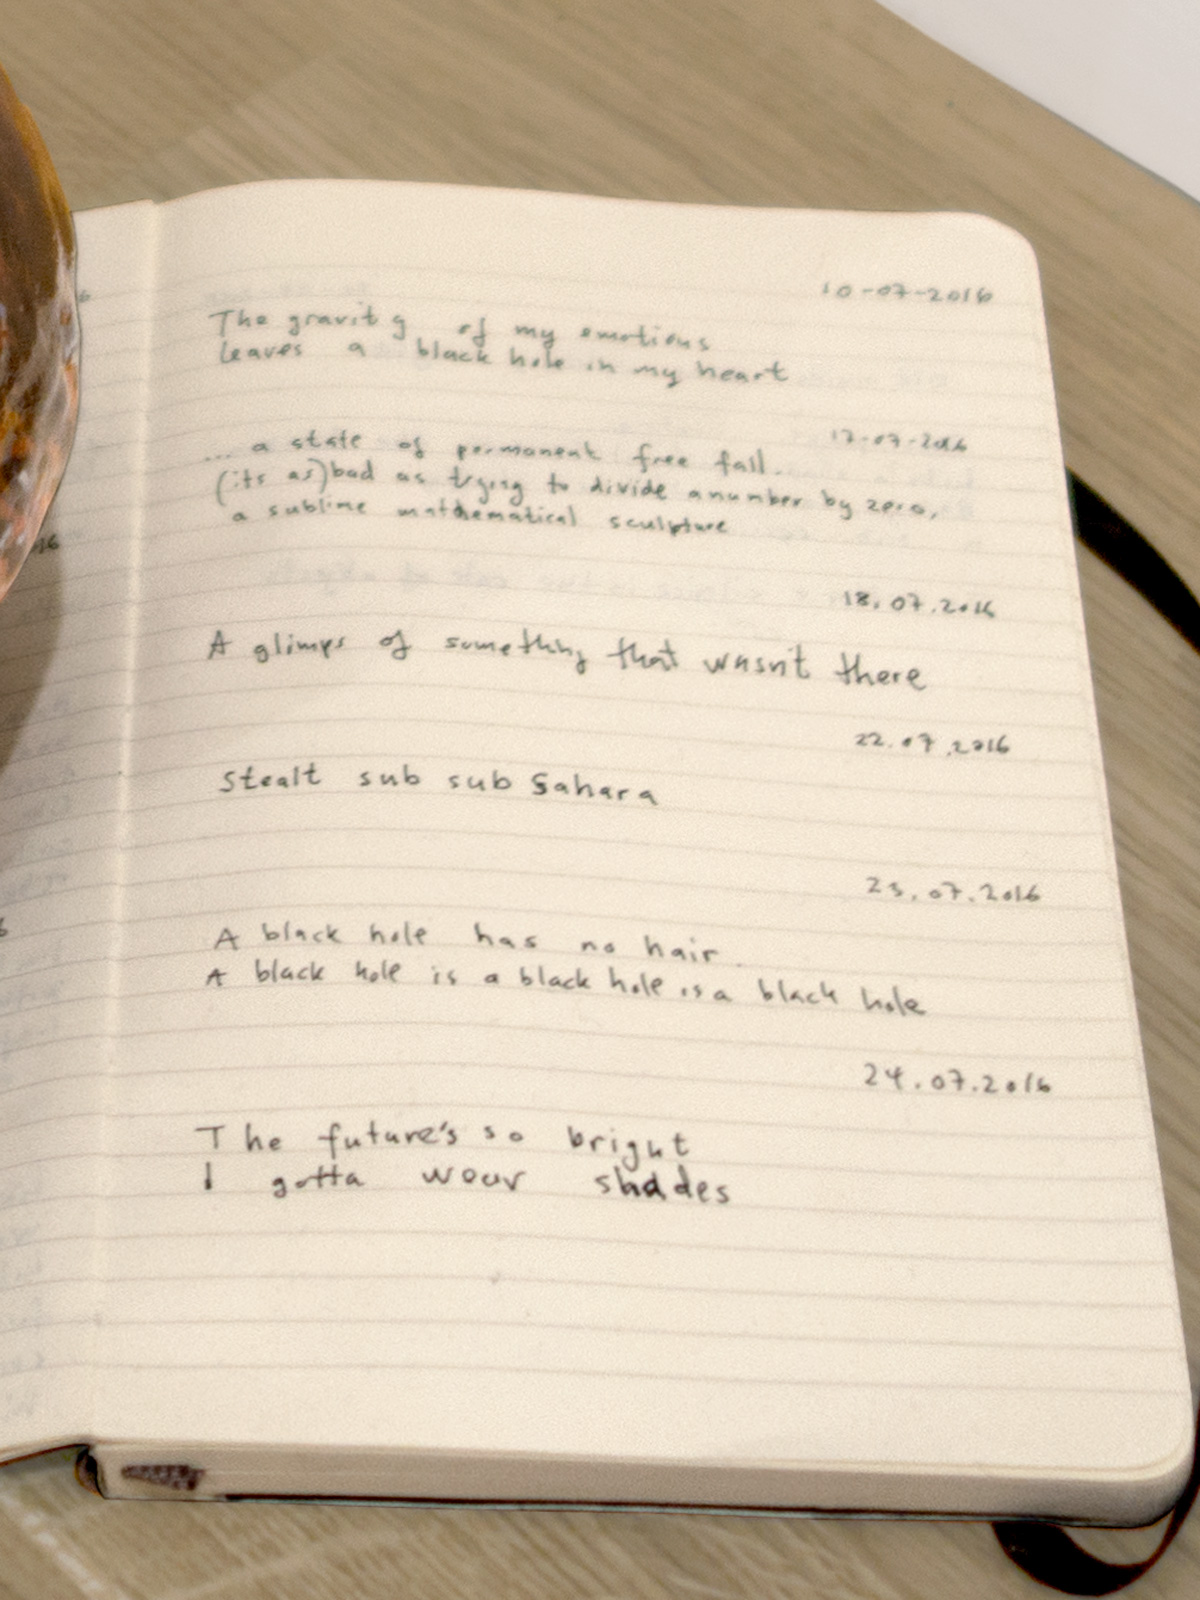 10-07-2016
The gravity of my emotions
leaves a black hole in my heart
17-07-2016
... a state of permanent free fall.
(its as) bad as trying to divide a number by zero,
a sublime mathematical sculpture
18.07.2016
A glimps of something that wasn't there
22.07.2016
Stealt sub sub Sahara
23.07.2016
A black hole has no hair.
A black hole is a black hole is a black hole
24.07.2016
The future's so bright
I gotta wear shades